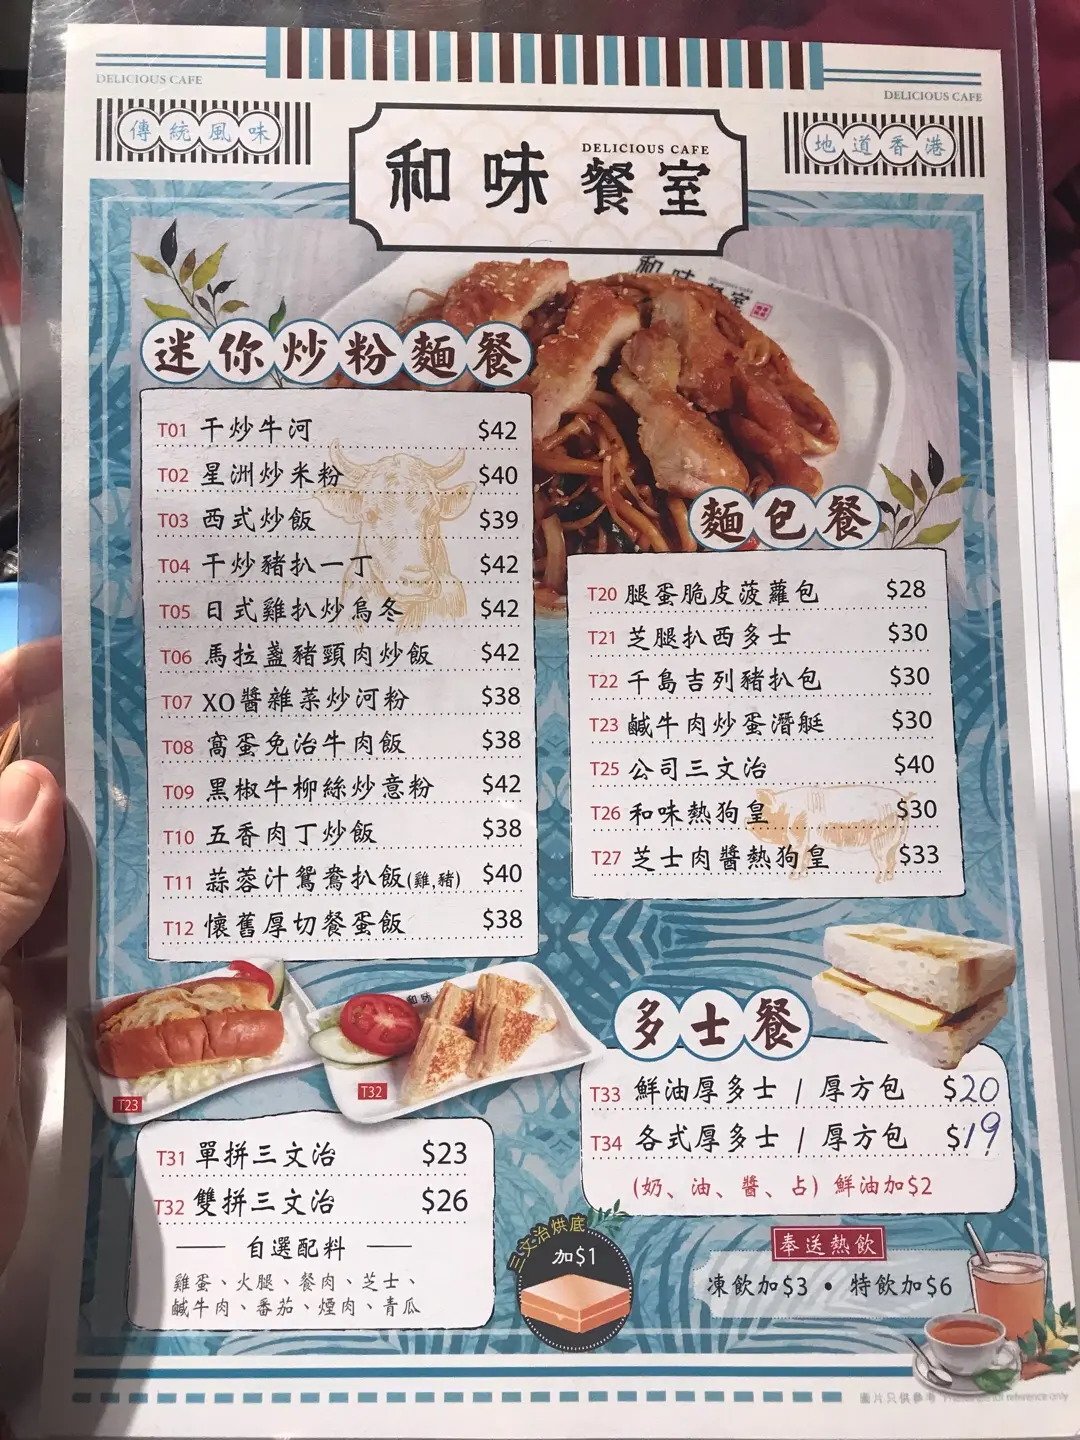 DELICIOUS CAFE
DELICIOUS CAFE
傳統風味
地道香港
DELICIOUS CAFE
和味餐室
和味
餐室
迷你炒粉麵餐
T01 干炒牛河 $42
T02 星洲炒米粉 $40
T03 西式炒飯 $39
T04 干炒豬扒一丁 $42
T05 日式雞扒炒烏冬 $42
T06 馬拉盞豬頸肉炒飯 $42
T07 XO醬雜菜炒河粉 $38
T08 窩蛋免治牛肉飯 $38
T09 黑椒牛柳絲炒意粉 $42
T10 五香肉丁炒飯 $38
T11 蒜蓉汁鴛鴦扒飯(雞,豬) $40
T12 懷舊厚切餐蛋飯 $38
麵包餐
T20 腿蛋脆皮菠蘿包 $28
T21 芝腿扒西多士 $30
T22 千島吉列豬扒包 $30
T23 鹹牛肉炒蛋潛艇 $30
T25 公司三文治 $40
T26 和味熱狗皇 $30
T27 芝士肉醬熱狗皇 $33
T23
和味
T32
T31 單拼三文治 $23
T32 雙拼三文治 $26
自選配料
雞蛋、火腿、餐肉、芝士、
鹹牛肉、番茄、煙肉、青瓜
三文治烘底
加$1
多士餐
T33 鮮油厚多士 / 厚方包 $20
T34 各式厚多士 / 厚方包 $19
(奶、油、醬、占) 鮮油加$2
奉送熱飲
凍飲加$3 • 特飲加$6
圖片只供參考 reference only